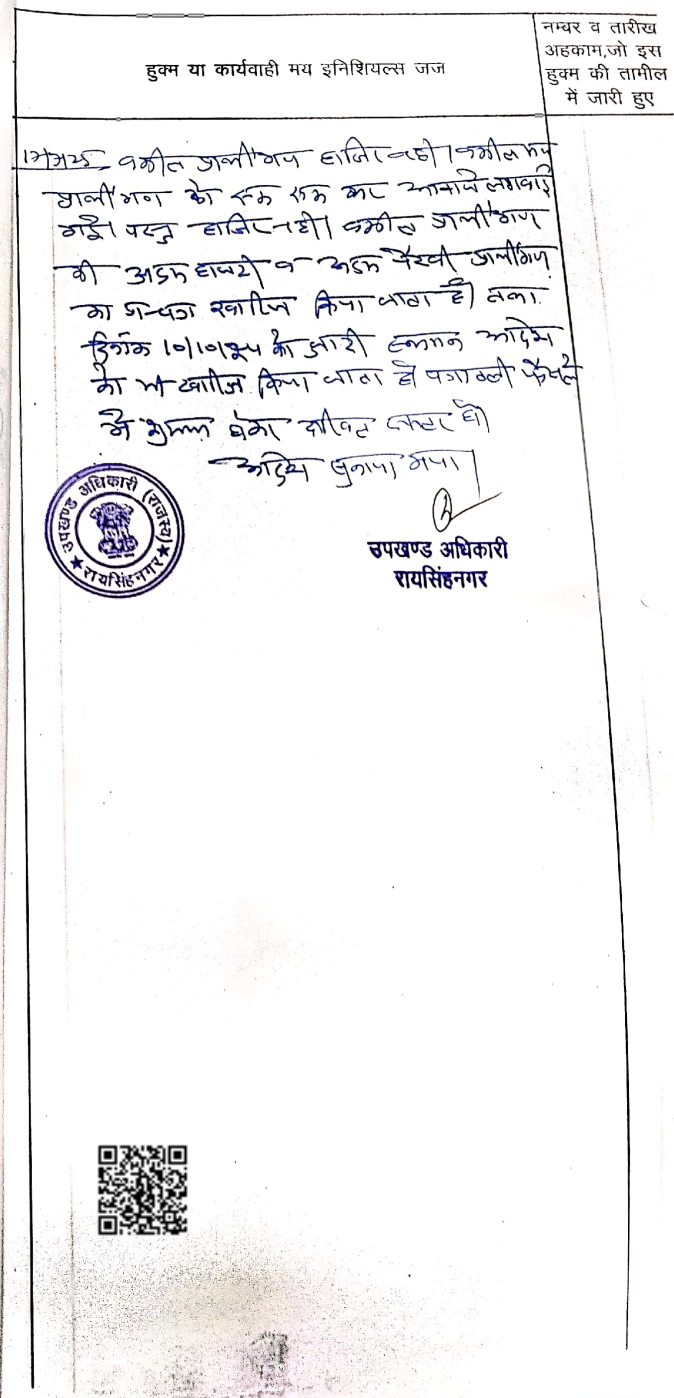 हुक्म या कार्यवाही मय इनिशियल्स जज
नम्बर व तारीख
अहकाम,जो इस
हुक्म की तामील
में जारी हुए
वकील प्रार्थीगण हाजिर नही। वकील मय
प्रार्थीगण को रूक रूक कर आवाजे लगवाई
गई। परन्तु हाजिर नही। वकील प्रार्थीगण
की अदम हाजरी व अदम पैरवी प्रार्थीगण
का प्रा-पत्र खारिज किया जाता है। तथा
दिनांक को जारी स्थगन आदेश
को भी खारिज किया जाता है। पत्रावली फैसले
में शुमार होकर दाखिल दफ्तर हो।
आदेश सुनाया गया।
उपखण्ड अधिकारी (राजस्व)
★ रायसिंहनगर ★
उपखण्ड अधिकारी
रायसिंहनगर